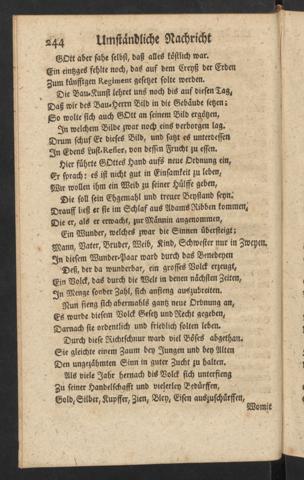 244 Umständliche Nachricht
GOtt aber sahe selbst, daß alles köstlich war.
Ein eintzges fehlte noch, das auf dem Creyß der Erden
Zum künfftgen Regiment gesetzet solte werden.
Die Bau-Kunst lehret uns noch bis auf diesen Tag,
Daß wir des Bau-Herrn Bild in die Gebäude setzen:
So wolte sich auch GOtt an seinem Bild ergötzen,
In welchem Bilde zwar noch eins verborgen lag.
Drum schuf Er dieses Bild, und satzt es unterdessen
In Edens Lust-Revier, von dessen Frucht zu essen.
Hier führte GOttes Hand aufs neue Ordnung ein,
Er sprach: es ist nicht gut in Einsamkeit zu leben,
Wir wollen ihm ein Weib zu seiner Hülffe geben,
Die soll sein Ehgemahl und treuer Beystand seyn.
Drauff ließ er sie im Schlaf aus Adams Ribben kommen,
Die er, als er erwacht, zur Männin angenommen,
Ein Wunder, welches zwar die Sinnen übersteigt:
Mann, Vater, Bruder, Weib, Kind, Schwester nur in Zweyen.
In diesem Wunder-Paar ward durch das Benedeyen
Deß, der da wunderbar, ein grosses Volck erzeugt,
Ein Volck, das durch die Welt in denen nächsten Zeiten,
In Menge sonder Zahl, sich anfieng auszubreiten.
Nun fieng sich abermahls gantz neue Ordnung an,
Es wurde diesem Volck Gesetz und Recht gegeben,
Darnach sie ordentlich und friedlich solten leben.
Durch diese Richtschnur ward viel Böses abgethan.
Sie gleichte einem Zaum bey Jungen und bey Alten
Den ungezähmten Sinn in guter Zucht zu halten.
Als viele Jahr hernach dis Volck sich unterfieng
Zu seiner Handelschafft und vielerley Bedürffen,
Gold, Silber, Kupffer, Zien, Bley, Eisen auszuschürffen,
Womit